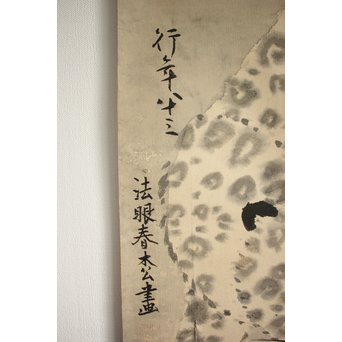 行年八十三
法眼春木公畫